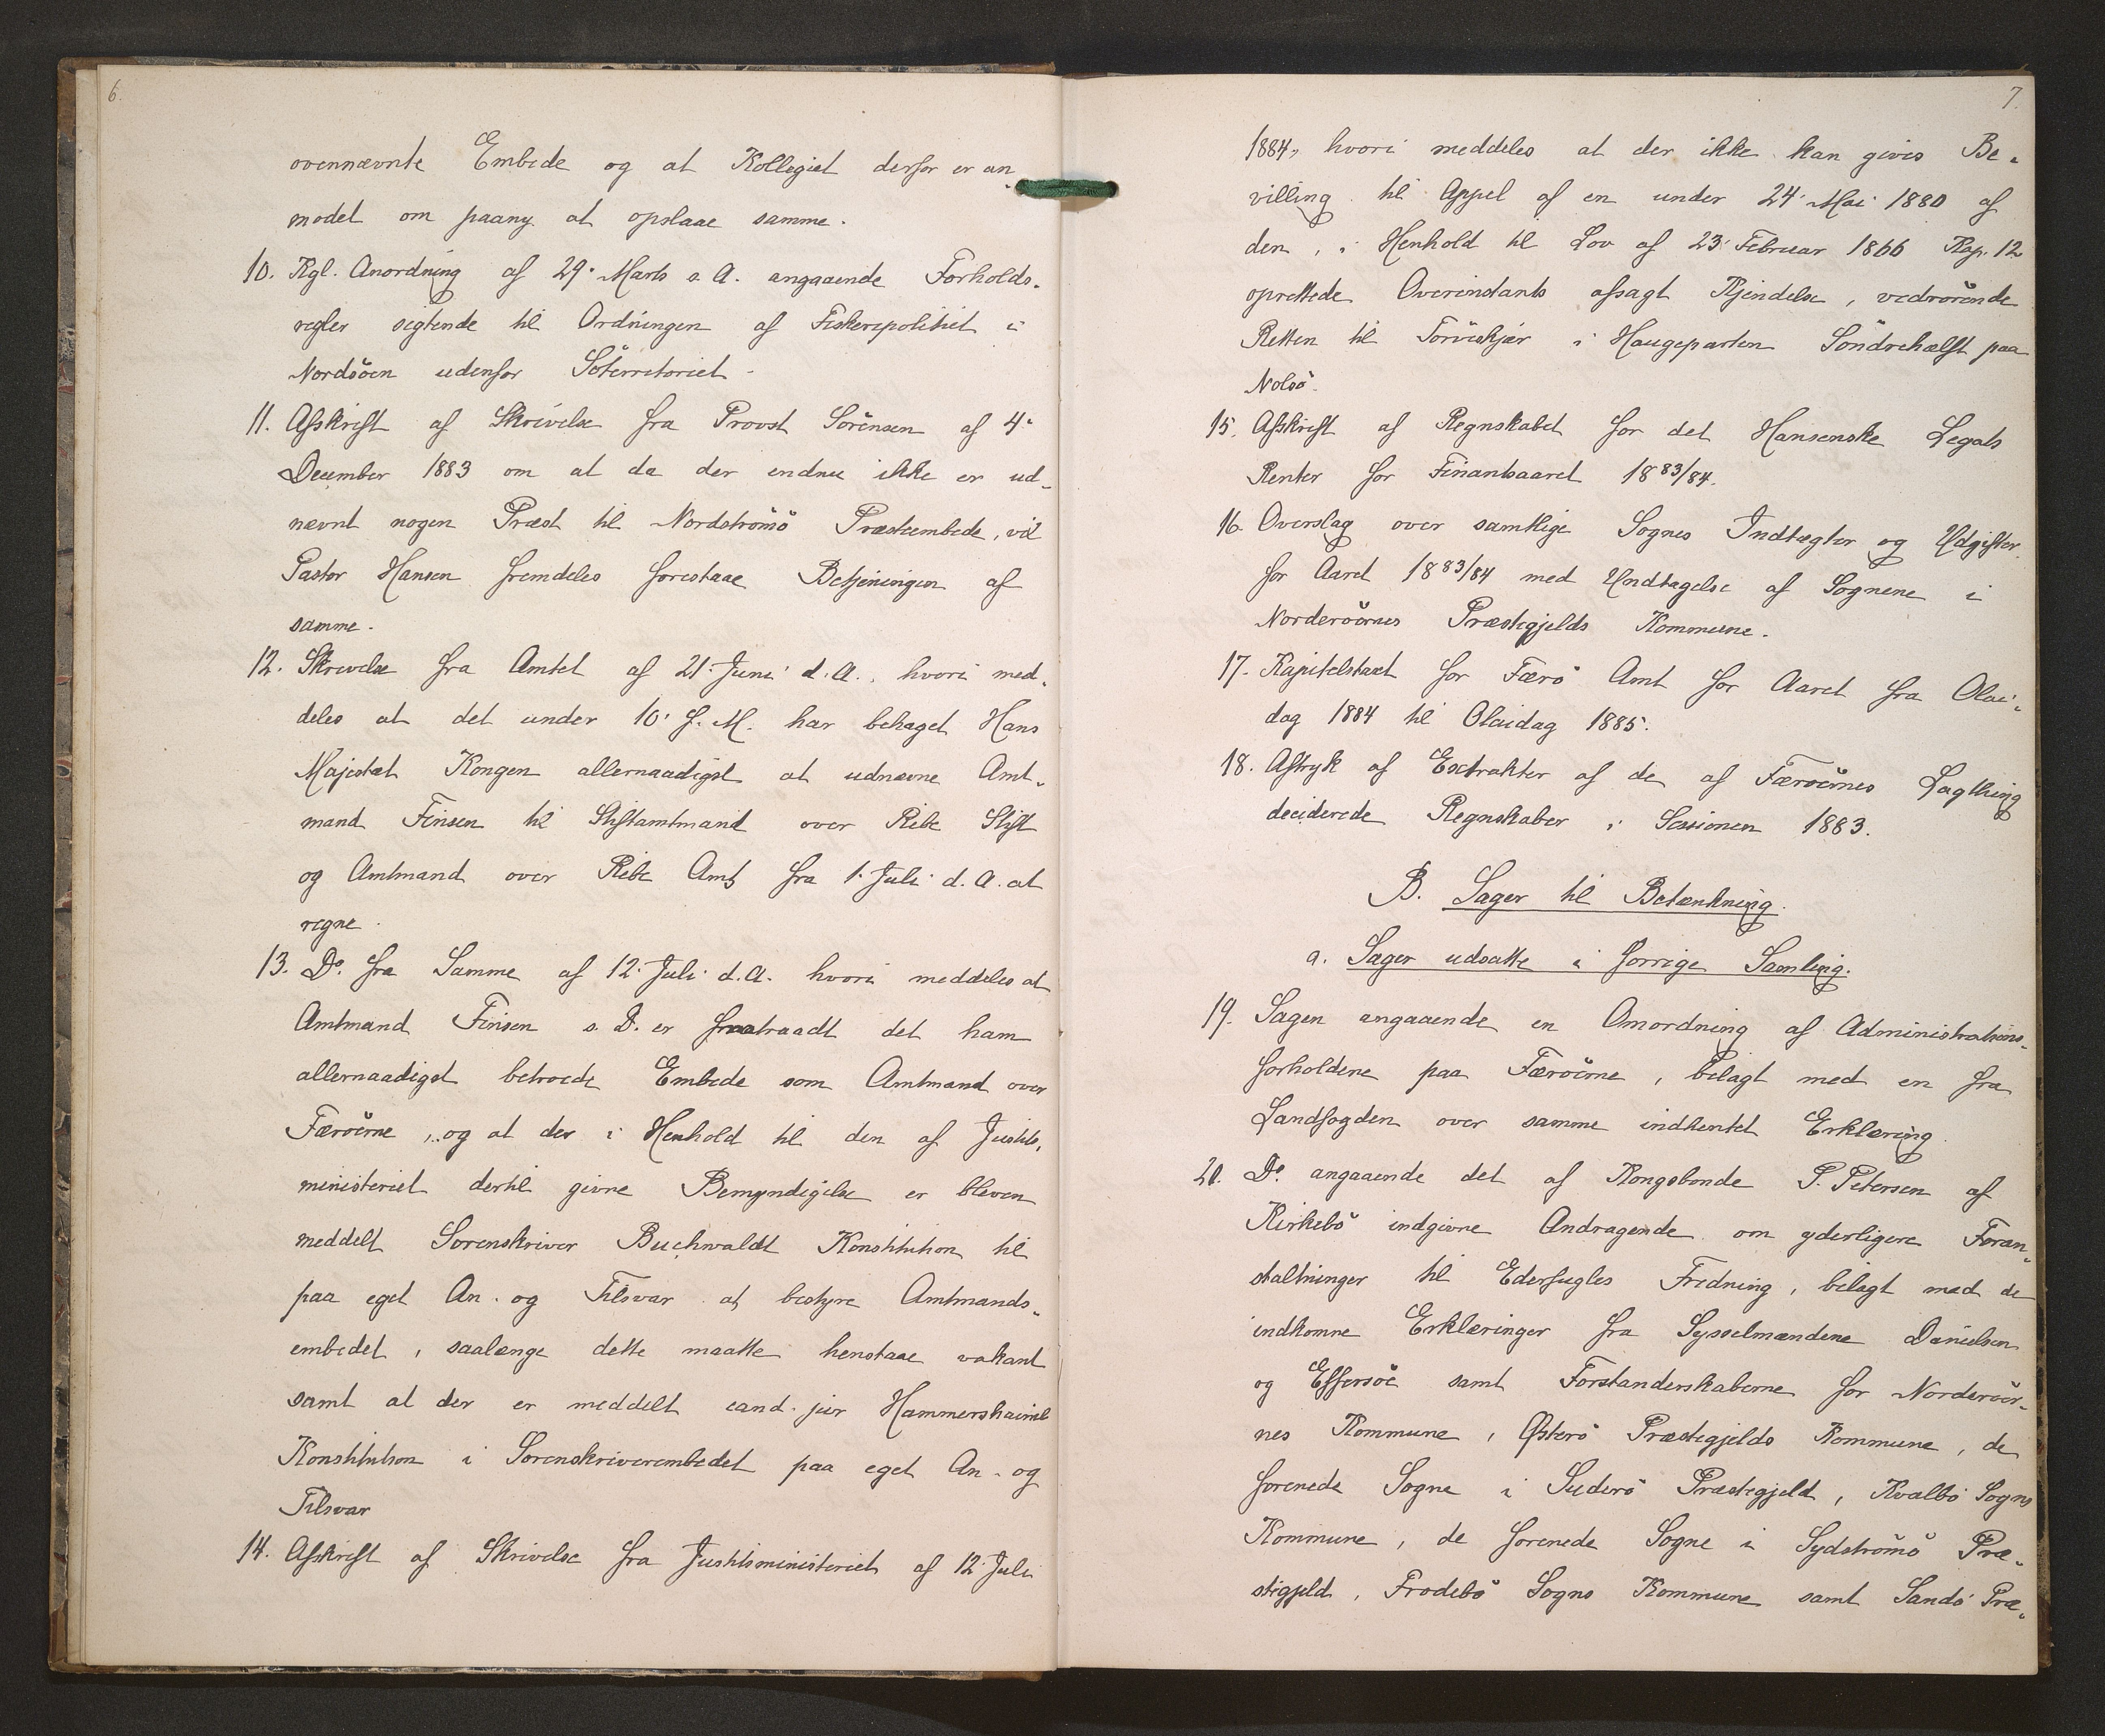 6.
ovennævnte Embede og at Kollegiet derfor er an„
modet om paany at opslaae samme.
10. Kgl. Anordning af 29' Marts s. A. angaaende Forholds„
regler sigtende til Ordningen af Fiskeripolitiet i
Nordsöen udenfor Söterritoriet.
11. Afskrift af Skrivelse fra Provst Sörensen af 4'
December 1883 om at da der endnu ikke er ud„
nævnt nogen Præst til Nordströmö Præsteembede, vil
Pastor Hansen fremdeles forestaae Betjeningen af
samme.
12. Skrivelse fra Amtet af 21' Juni d. A., hvori med„
deles at det under 10' f. M. har behaget Hans
Majestæt Kongen allernaadigst at udnævne Amt„
mand Finsen til Stiftamtmand over Ribe Stift
og Amtmand over Ribe Amt fra 1' Juli d. A. at
regne.
13. Do. fra Samme af 12' Juli d. A. hvori meddeles at
Amtmand Finsen s. D. er fratraadt det ham
allernaadigst betroede Embede som Amtmand over
Færöerne, og at der i Henhold til den af Justits„
ministeriet dertil givne Bemyndigelse er bleven
meddelt Sorenskriver Buchwaldt Konstitution til
paa eget An- og Tilsvar at bestyre Amtmands„
embedet, saalænge dette maatte henstaae vakant
samt at der er meddelt cand. jur Hammershaimb
Konstitution i Sorenskriverembedet paa eget An- og
Tilsvar
14. Afskrift af Skrivelse fra Justitsministeriet af 12' Juli
7.
1884, hvori meddeles at der ikke kan gives Be„
villing til Appel af en under 24' Mai 1880 af
den, i Henhold til Lov af 23' Februar 1866 Kap. 12
oprettede Overinstants afsagt Kjendelse, vedrörende
Retten til Törveskjær i Haugeparten Söndrehælft paa
Nolsö.
15. Afskrift af Regnskabet for det Hansenske Legats
Renter for Finantsaaret 1883/84.
16. Overslag over samtlige Sognes Indtægter og Udgifter
for Aaret 1883/84 med Undtagelse af Sognene i
Norderöernes Præstegjelds Kommune.
17. Kapitelstaxt for Færö Amt for Aaret fra Olai„
dag 1884 til Olaidag 1885.
18. Aftryk af Extrakter af de af Færöernes Lagthing
deciderede Regnskaber i Sessionen 1883.
B. Sager til Betænkning.
a. Sager udsatte i forrige Samling.
19. Sagen angaaende en Omordning af Administrations„
forholdene paa Færöerne, bilagt med en fra
Landfogden over samme indhentet Erklæring.
20. Do. angaaende det af Kongsbonde P. Petersen af
Kirkebö indgivne Andragende om yderligere Foran„
staltninger til Ederfugles Fredning, bilagt med de
indkomne Erklæringer fra Sysselmændene Danielsen
og Effersöe samt Forstanderskaberne for Norderöer„
nes Kommune, Österö Præstegjelds Kommune, de
forenede Sogne i Suderö Præstegjeld, Kvalbö Sogns
Kommune, de forenede Sogne i Sydströmö Præ„
stegjeld, Frodebö Sogns Kommune samt Sandö Præ„